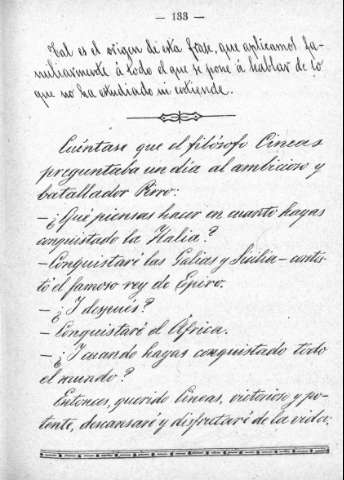 — 133 —
Tal es el origen de esta frase, que aplicamos fa-
miliarmente á todo el que se pone á hablar de lo
que no ha estudiado ni entiende.
Cuéntase que el filósofo Cineas
preguntaba un dia al ambicioso y
batallador Pirro:
—¿Qué piensas hacer en cuanto hayas
conquistado la Italia?
—Conquistaré las Galias y Sicilia—contes-
tó el famoso rey de Epiro.
—¿Y después?
—Conquistaré el África.
—¿Y cuando hayas conquistado todo
el mundo?
Entonces, querido Cineas, victorioso y po-
tente, descansaré y disfrutaré de la vida.